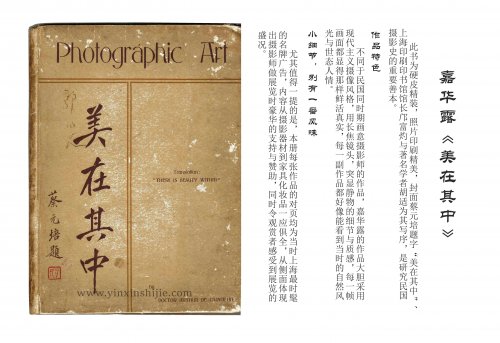 Photographic Art
美在其中
蔡元培题
Translation
"THERE IS BEAUTY WITHIN"
www.yinxinshijie.com
by
DOCTOR
嘉华露《美在其中》
此书为硬皮精装，照片印刷精美，封面蔡元培题字“美在其中”、
上海印刷印书馆馆长邝富灼与著名学者胡适为其写序，是研究民国
摄影史的重要善本。
作品特色
不同于民国同时期画意摄影师的作品，嘉华露的作品大胆采用
现代主义摄像风格，用长焦镜头，突显静物的细节与质感，每一帧
画面都显得那样鲜活真实，每一副作品都好像能看到当时的自然风
光与世态人情。
小细节，别有一番风味
尤其值得一提的是，本册每张作品的对页均为当时上海最时髦
的名牌广告，内容从摄影器材到家具化妆品一应俱全，从侧面体现
出摄影师做展览时豪华的支持与赞助，同时令观赏者感受到展览的
盛况。